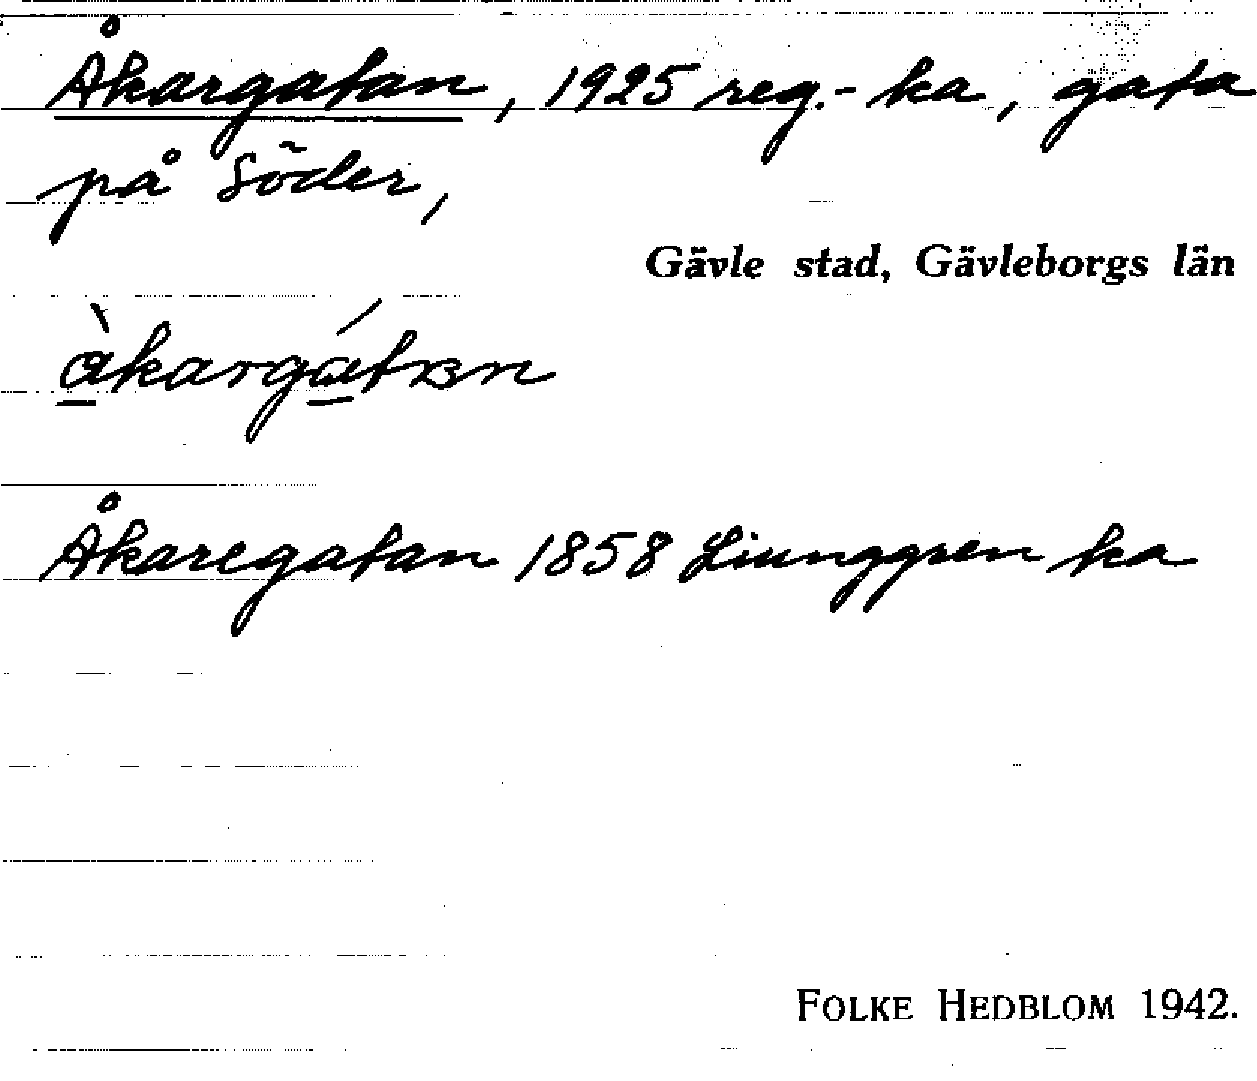 Åkargatan, 1925 reg.-ka, gata
på Söder,
Gävle stad, Gävleborgs län
åkargátan
Åkaregatan 1858 Ljunggren ka
FOLKE HEDBLOM 1942.